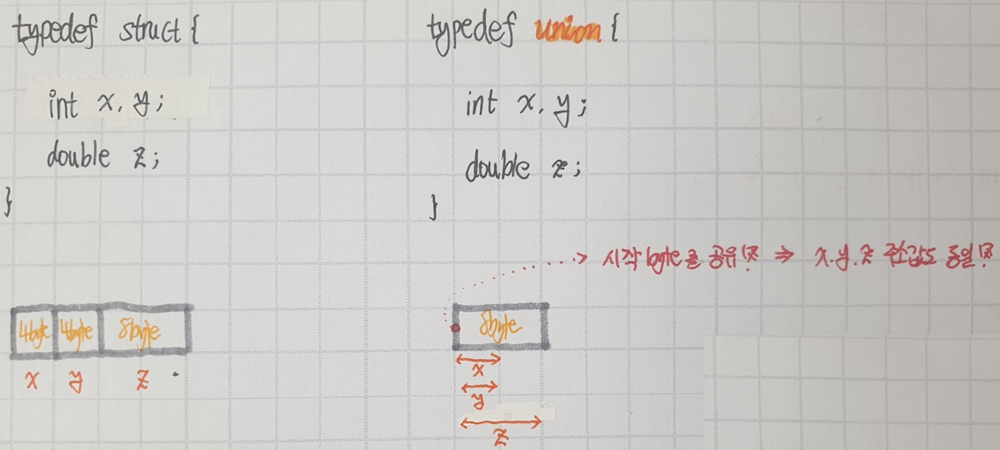 typedef struct {
int x, y;
double z;
}
4byte 4byte 8byte
x y z
typedef union {
int x, y;
double z;
}
시작 byte를 공유! ⇒ x, y, z 주소값도 동일!
8byte
x
y
z